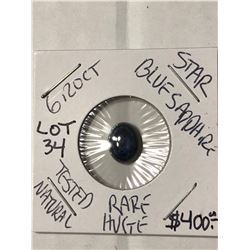 6.20CT
STAR
BLUE SAPPHIRE
LOT
34
TESTED
NATURAL
RARE
HUGE
$400.00